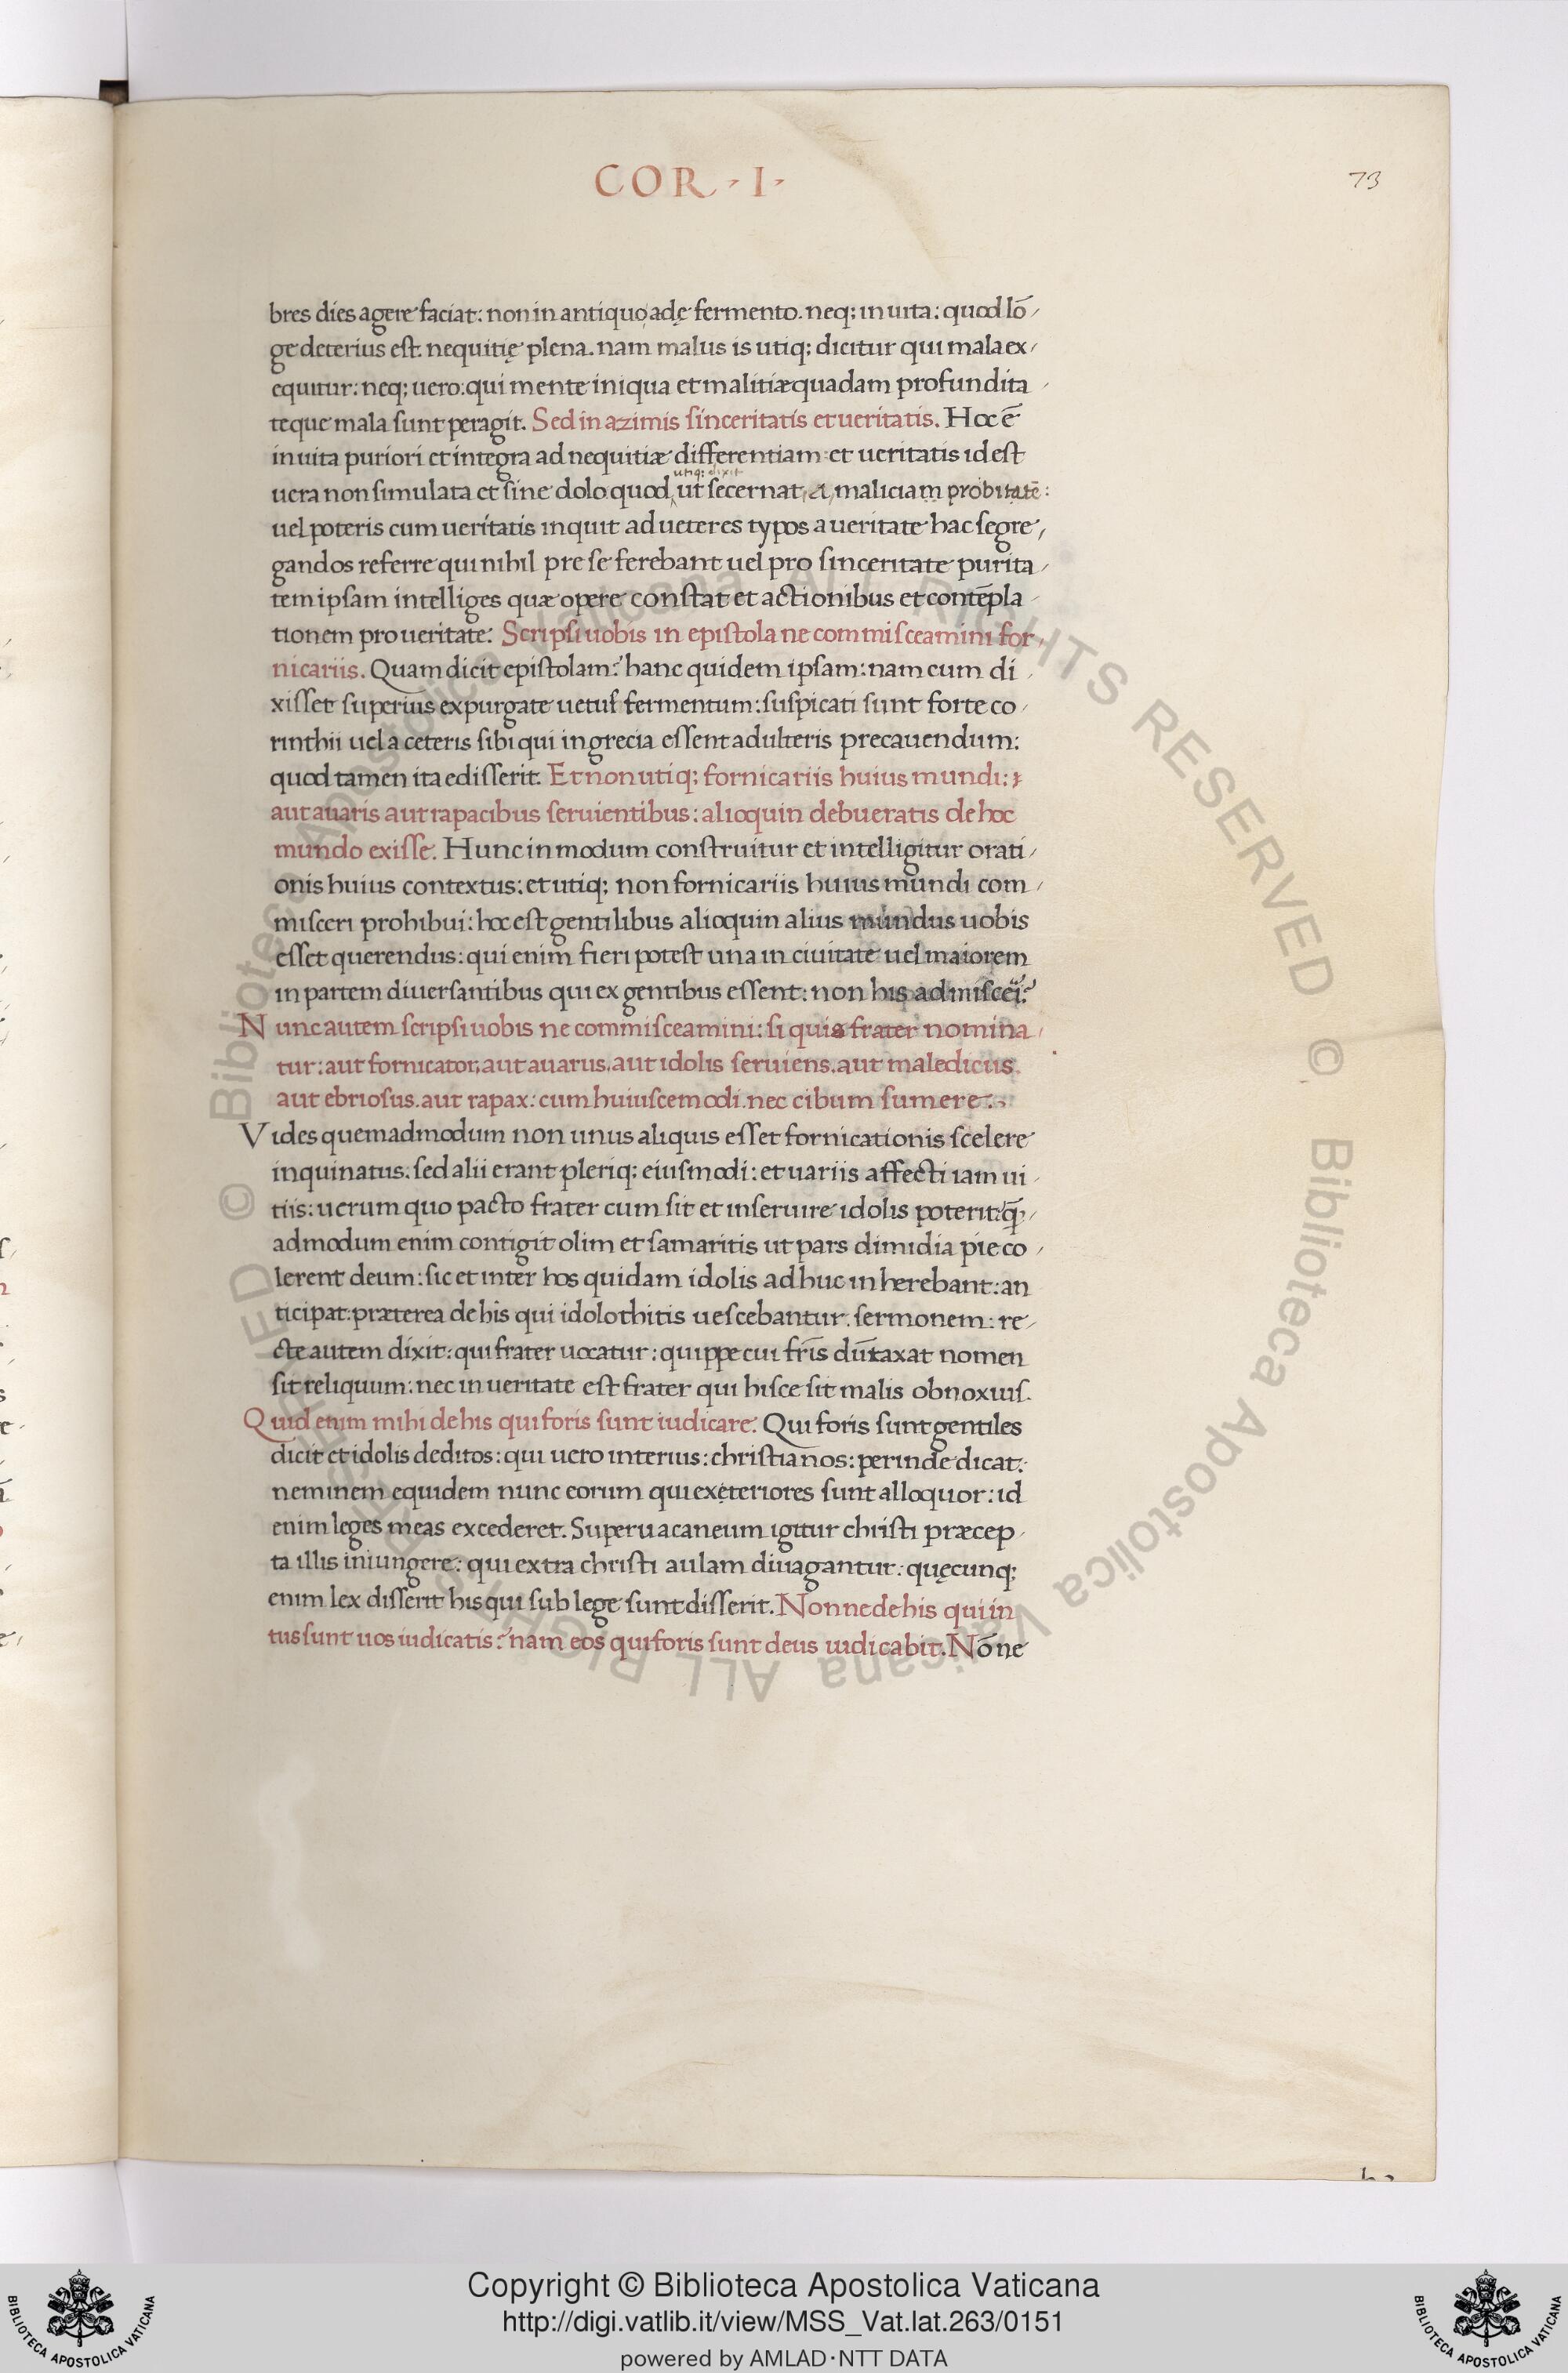 COR · I ·
73
bres dies agere faciat: non in antiquo adę fermento. neq; in uita: quod lō
ge deterius est. nequitię plena. nam malus is utiq; dicitur qui mala ex
equitur: neq; uero: qui mente iniqua et malitiæ quadam profundita
teque mala sunt peragit. Sed in azimis sinceritatis et ueritatis. Hoc ē
in uita puriori et integra ad nequitiæ differentiam: et ueritatis id est
utiq; dixit
uera non simulata et sine dolo. quod ut secernat a maliciam probitatē:
uel poteris cum ueritatis inquit ad ueteres typos a ueritate hac segre
gandos referre qui nihil pre se ferebant uel pro sinceritate purita
tem ipsam intelliges quæ opere constat et actionibus et contēpla
tionem pro ueritate: Scripsi uobis in epistola ne commisceamini for
nicariis. Quam dicit epistolam? hanc quidem ipsam: nam cum di
xisset superius expurgate uetus fermentum: suspicati sunt forte co
rinthii uel a ceteris sibi qui in grecia essent adulteris precauendum:
quod tamen ita edisserit. Et non utiq; fornicariis huius mundi:
aut auaris aut rapacibus seruientibus: alioquin debueratis de hoc
mundo exisse. Hunc in modum construitur et intelligitur orati
onis huius contextus: et utiq; non fornicariis huius mundi com
misceri prohibui: hoc est gentilibus alioquin alius mundus uobis
esset querendus: qui enim fieri potest una in ciuitate uel maiorem
in partem diuersantibus qui ex gentibus essent: non his admisceri?
Nunc autem scripsi uobis ne commisceamini: si quis frater nomina
tur: aut fornicator, aut auarus. aut idolis seruiens. aut maledicus.
aut ebriosus. aut rapax: cum huiuscemodi. nec cibum sumere.
Vides quemadmodum non unus aliquis esset fornicationis scelere
inquinatus: sed alii erant pleriq; eiusmodi: et uariis affecti iam ui
tiis: uerum quo pacto frater cum sit et inseruire idolis poterit: q̄
admodum enim contigit olim et samaritis ut pars dimidia pie co
lerent deum: sic et inter hos quidam idolis adhuc inherebant: an
ticipat: præterea de his qui idolothitis uescebantur. sermonem: re
cte autem dixit: qui frater uocatur: quippe cui fr̄is dūtaxat nomen
sit reliquum: nec in ueritate est frater qui hisce sit malis obnoxius.
Quid enim mihi de his qui foris sunt iudicare. Qui foris sunt gentiles
dicit et idolis deditos: qui uero interius: christianos: perinde dicat:
neminem equidem nunc eorum qui exęteriores sunt alloquor: id
enim leges meas excederet. Superuacaneum igitur christi præcep
ta illis iniungere: qui extra christi aulam diuagantur: quęcunq;
enim lex disserit his qui sub lege sunt disserit. Nonne de his qui in
tus sunt uos iudicatis? nam eos qui foris sunt deus iudicabit. Nōne
© Biblioteca Apostolica Vaticana ALL RIGHTS RESERVED © Biblioteca Apostolica Vaticana ALL RIGHTS RESERVED
Copyright © Biblioteca Apostolica Vaticana
http://digi.vatlib.it/view/MSS_Vat.lat.263/0151
powered by AMLAD·NTT DATA
BIBLIOTECA APOSTOLICA VATICANA
BIBLIOTECA APOSTOLICA VATICANA